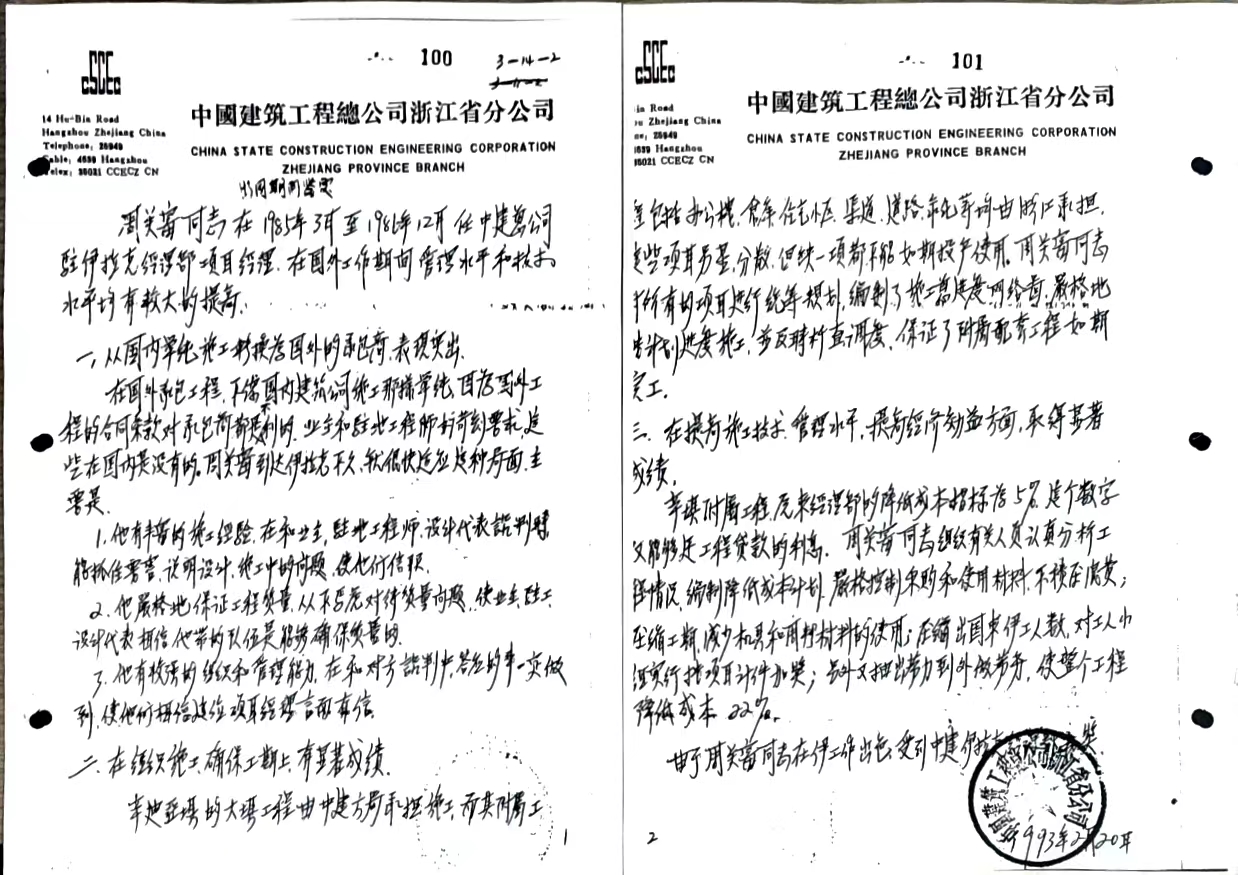 CSCEC
100
3-14-2
14 Hu-Bin Road
Hangzhou Zhejiang China
Telephone: 26949
Cable: 4639 Hangzhou
Telex: 35021 CCECZ CN
中國建筑工程總公司浙江省分公司
CHINA STATE CONSTRUCTION ENGINEERING CORPORATION
ZHEJIANG PROVINCE BRANCH
出国期间鉴定
周关富同志在1985年3月至1986年12月任中建总公司
驻伊拉克经理部项目经理。在国外工作期间管理水平和技术
水平均有较大的提高。
一、从国内单纯施工转换为国外的承包商,表现突出。
在国外承包工程,不像国内建筑公司施工那样单纯,因为国外工
程的合同条款对承包商都是不利的,业主和驻地工程师的苛刻要求,这
些在国内是没有的。周关富到达伊拉克不久,就很快适应这种局面,主
要是:
1.他有丰富的施工经验,在和业主,驻地工程师,设计代表谈判时,
能抓住要害,说明设计、施工中的问题,使他们信服。
2.他严格地保证工程质量,从不忽视对待质量问题,使业主,驻工,
设计代表相信他带的队伍是能够确保质量的。
3.他有较强的组织和管理能力,在和对方谈判中,答应的事一定做
到,使他们相信这位项目经理言而有信。
二、在组织施工、确保工期上,有显著成绩。
辛迪亚坝的大坝工程由中建方局承担施工,而其附属工
1
CSCEC
101
in Road
ou Zhejiang China
ne: 26949
4639 Hangzhou
35021 CCECZ CN
中國建筑工程總公司浙江省分公司
CHINA STATE CONSTRUCTION ENGINEERING CORPORATION
ZHEJIANG PROVINCE BRANCH
程包括办公楼、仓库、住宅小区、渠道、道路、绿化等均由浙江承担,
这些项目另星,分散,但缺一项都不能如期投产使用。周关富同志
对所有的项目进行统筹规划,编制了施工总进度网络图,严格地
按计划进度施工,并及时检查调度,保证了附属配套工程如期
完工。
三、在提高施工技术、管理水平,提高经济效益方面,取得显著
成绩。
辛坝附属工程,原来经理部的降低成本指标为5%,这个数字
只能够还工程贷款的利息。周关富同志组织有关人员认真分析工
程情况,编制降低成本计划,严格控制采购和使用材料,不积压浪费;
压缩工期,减少机具和周转材料的使用;压缩出国来伊工人数,对工人小
组实行按项目计件加奖;另外又抽出劳力到外做劳务,使整个工程
降低成本22%。
由于周关富同志在伊工作出色,受到中建伊拉克
奖。
1993年2月20日
2